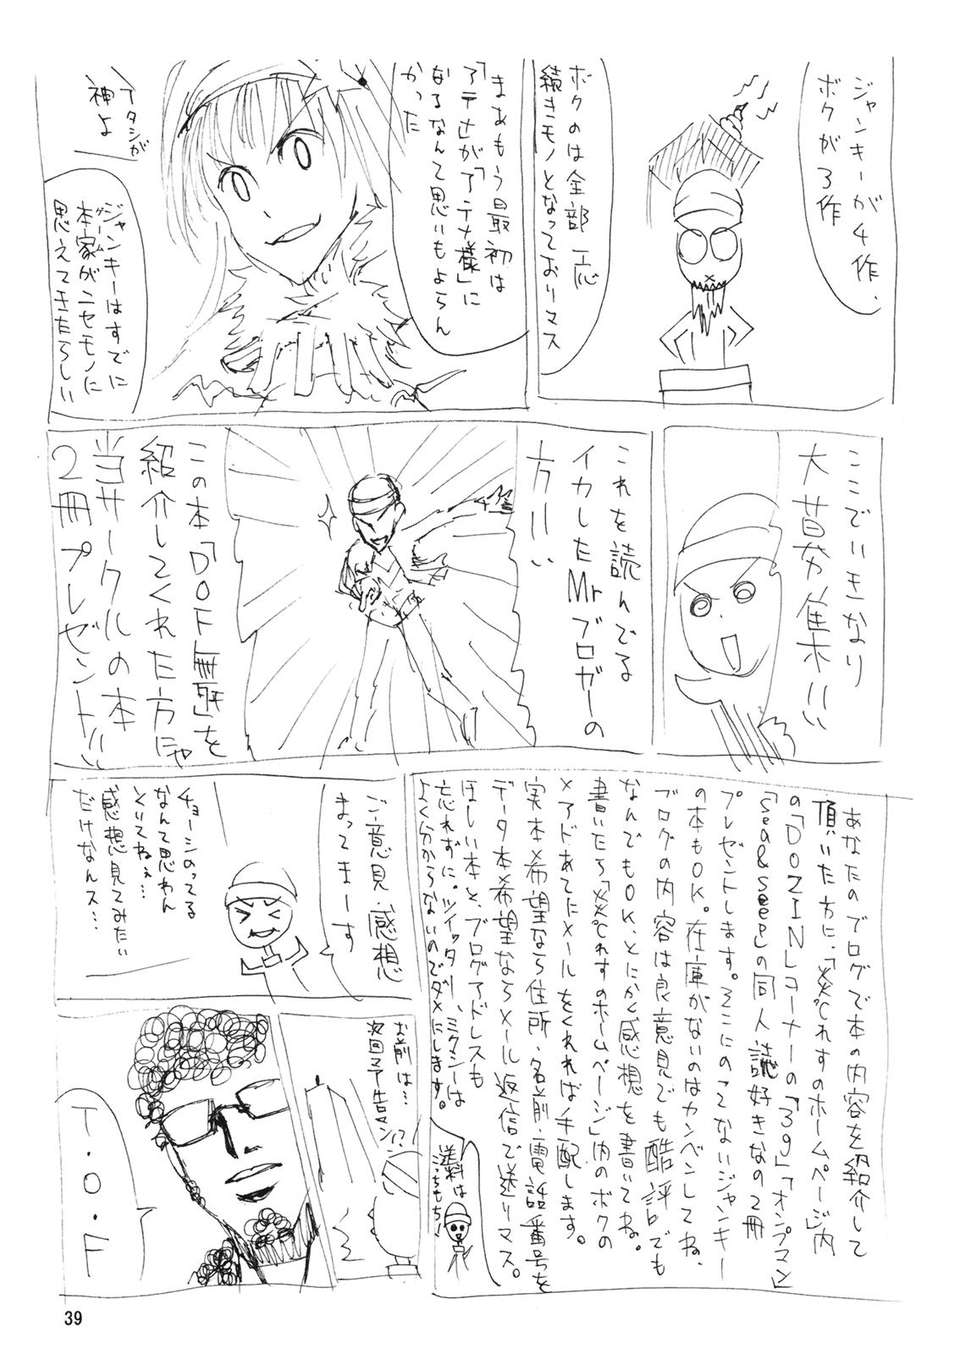 ジャンキーが4作、
ボクが3作
ボクのは全部一応
続きモノとなっておりマス
まあもう最初は
「アテナ」が「アテナ様」に
なるなんて思いもよらん
かった
アタシが
神よ
ジャンキーはすでに
本家がニセモノに
思えてきたらしい
ここでいきなり
大募集!!!
これを読んでる
イカしたMrブロガーの
方!!!
この本「DOF無双」を
紹介してくれた方にゃ
当サークルの本
2冊プレゼント!!!
あなたのブログで本の内容を紹介して
頂いた方に、「炎くれすのホームページ」内
の「DOZIN」コーナーの「39」「オンプマン」
「sea&seep」の同人誌好きなの2冊
プレゼントします。そこにのってないジャンキー
の本もOK。在庫がないのはカンベンしてね。
ブログの内容は良意見でも酷評でも
なんでもOK、とにかく感想を書いてね。
書いたら「炎くれすのホームページ」内のボクの
メアドあてにメールをくれれば手配します。
実本希望なら住所・名前・電話番号を
データ本希望ならメール返信で送りマス。
ほしい本と、ブログアドレスも
忘れずに。ツイッター、ミクシーは
よく分からないのでダメにします。
送料は
こっちもち!
ご意見・感想
まってまーす
チョーシのってる
なんて思わん
といてねぇ…
感想見てみたい
だけなんス…
お前は…
次回予告マン!?
T.O.F
39